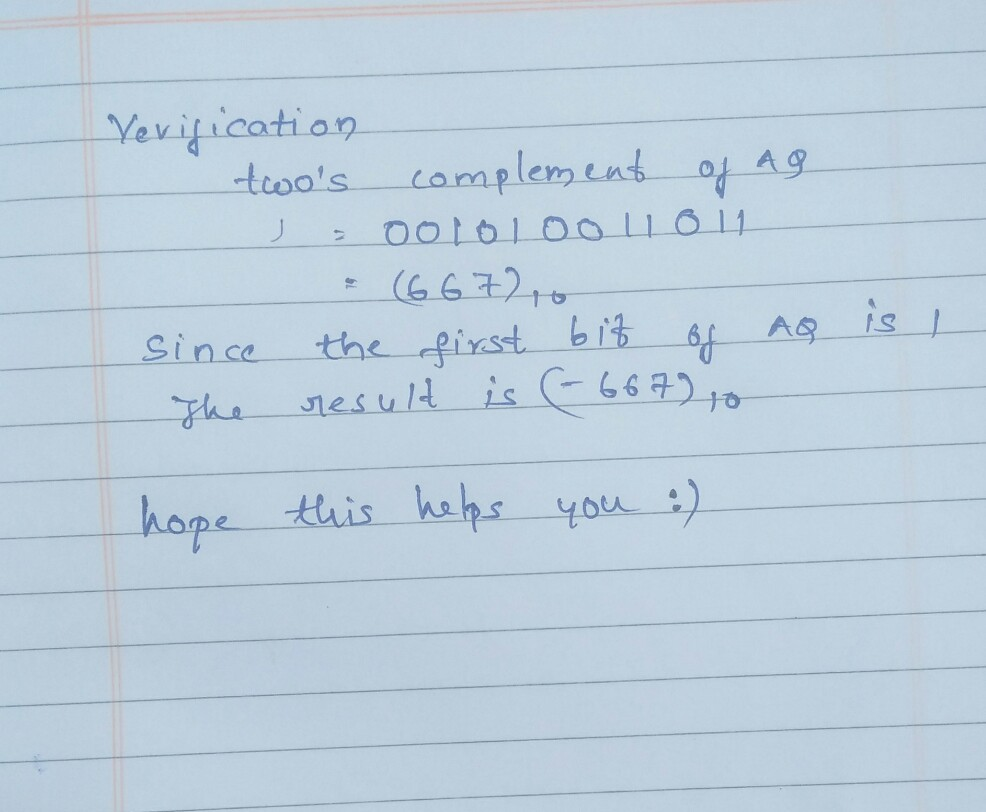 Verification
two's complement of AQ
= 001010011011
= (667)10
Since the first bit of AQ is 1
The result is (-667)10
hope this helps you :)